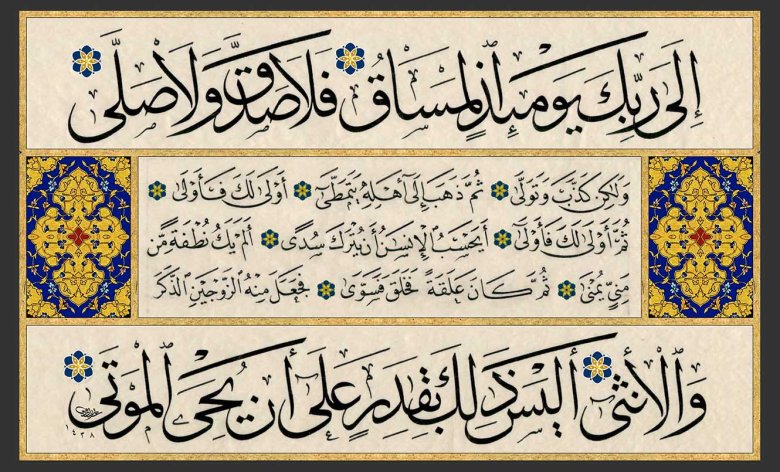 إِلَىٰ رَبِّكَ يَوْمَئِذٍ ٱلْمَسَاقُ فَلَا صَدَّقَ وَلَا صَلَّىٰ
وَلَٰكِن كَذَّبَ وَتَوَلَّىٰ ثُمَّ ذَهَبَ إِلَىٰٓ أَهْلِهِۦ يَتَمَطَّىٰٓ أَوْلَىٰ لَكَ فَأَوْلَىٰ
ثُمَّ أَوْلَىٰ لَكَ فَأَوْلَىٰٓ أَيَحْسَبُ ٱلْإِنسَٰنُ أَن يُتْرَكَ سُدًى أَلَمْ يَكُ نُطْفَةً مِّن
مَّنِىٍّ يُمْنَىٰ ثُمَّ كَانَ عَلَقَةً فَخَلَقَ فَسَوَّىٰ فَجَعَلَ مِنْهُ ٱلزَّوْجَيْنِ ٱلذَّكَرَ
وَٱلْأُنثَىٰٓ أَلَيْسَ ذَٰلِكَ بِقَٰدِرٍ عَلَىٰٓ أَن يُحْـِۧىَ ٱلْمَوْتَىٰ
١٤٣٨